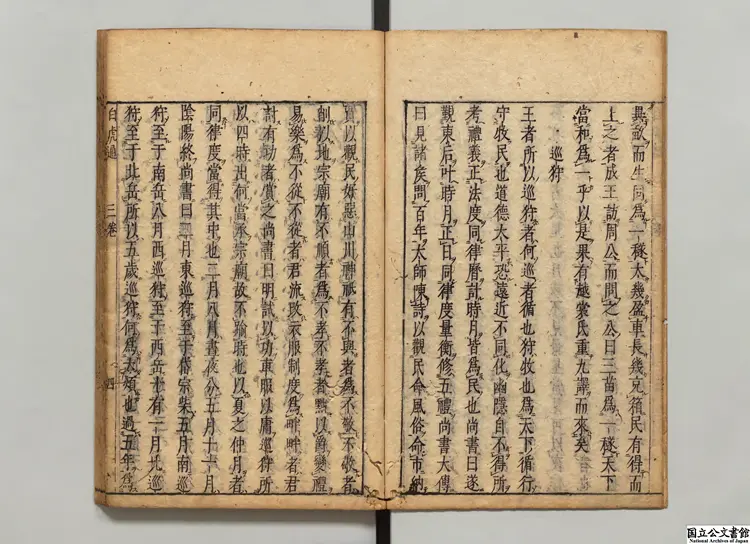 異畝而生同為一穟大幾盈車長幾充箱民有得而
上之者成王訪周公而問之公曰三苗為一穟天下
當和為一乎以是果有越裳氏重九譯而來矣
巡狩
王者所以巡狩者何巡者循也狩牧也為天下循行
守牧民也道德太平恐遠近不同化幽隱自不得所
考禮義正法度同律曆計時月皆為民也尚書曰遂
覲東后叶時月正日同律度量衡修五禮尚書大傳
曰見諸侯問百年太師陳詩以觀民命風俗命市納
賈以觀民好惡山川神祇有不舉者為不敬不敬者
削以地宗廟有不順者為不孝不孝者黜以爵變禮
易樂為不從不從者君流改衣服制度為畔畔者君
討有功者賞之尚書曰明試以功車服以庸巡狩所
以四時出何當承宗廟故不踰時也以夏之仲月者
同律度當得其中也二月八月晝夜分五月十一月
陰陽終尚書曰二月東巡狩至于岱宗柴五月南巡
狩至于南岳八月西巡狩至于西岳十有一月朔巡
狩至于北岳所以五歲巡狩何為太煩也過五年為
白虎通 三卷 四
国立公文書館
National Archives of Japan